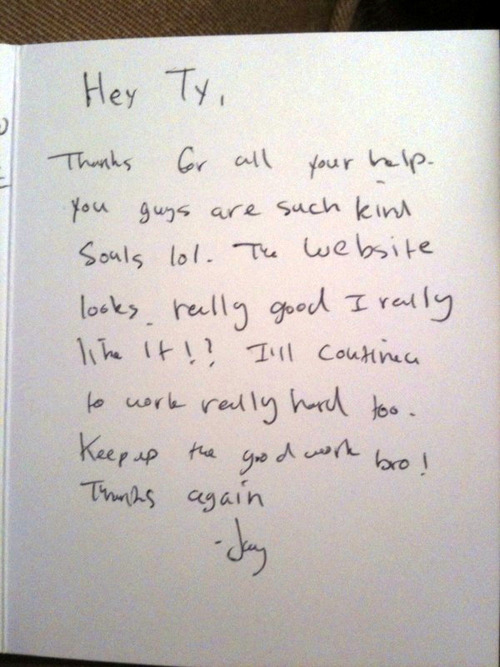 Hey Ty,
Thanks for all your help.
You guys are such kind
Souls lol. The website
looks really good I really
like it!! I'll continue
to work really hard too.
Keep up the good work bro!
Thanks again
-Jay